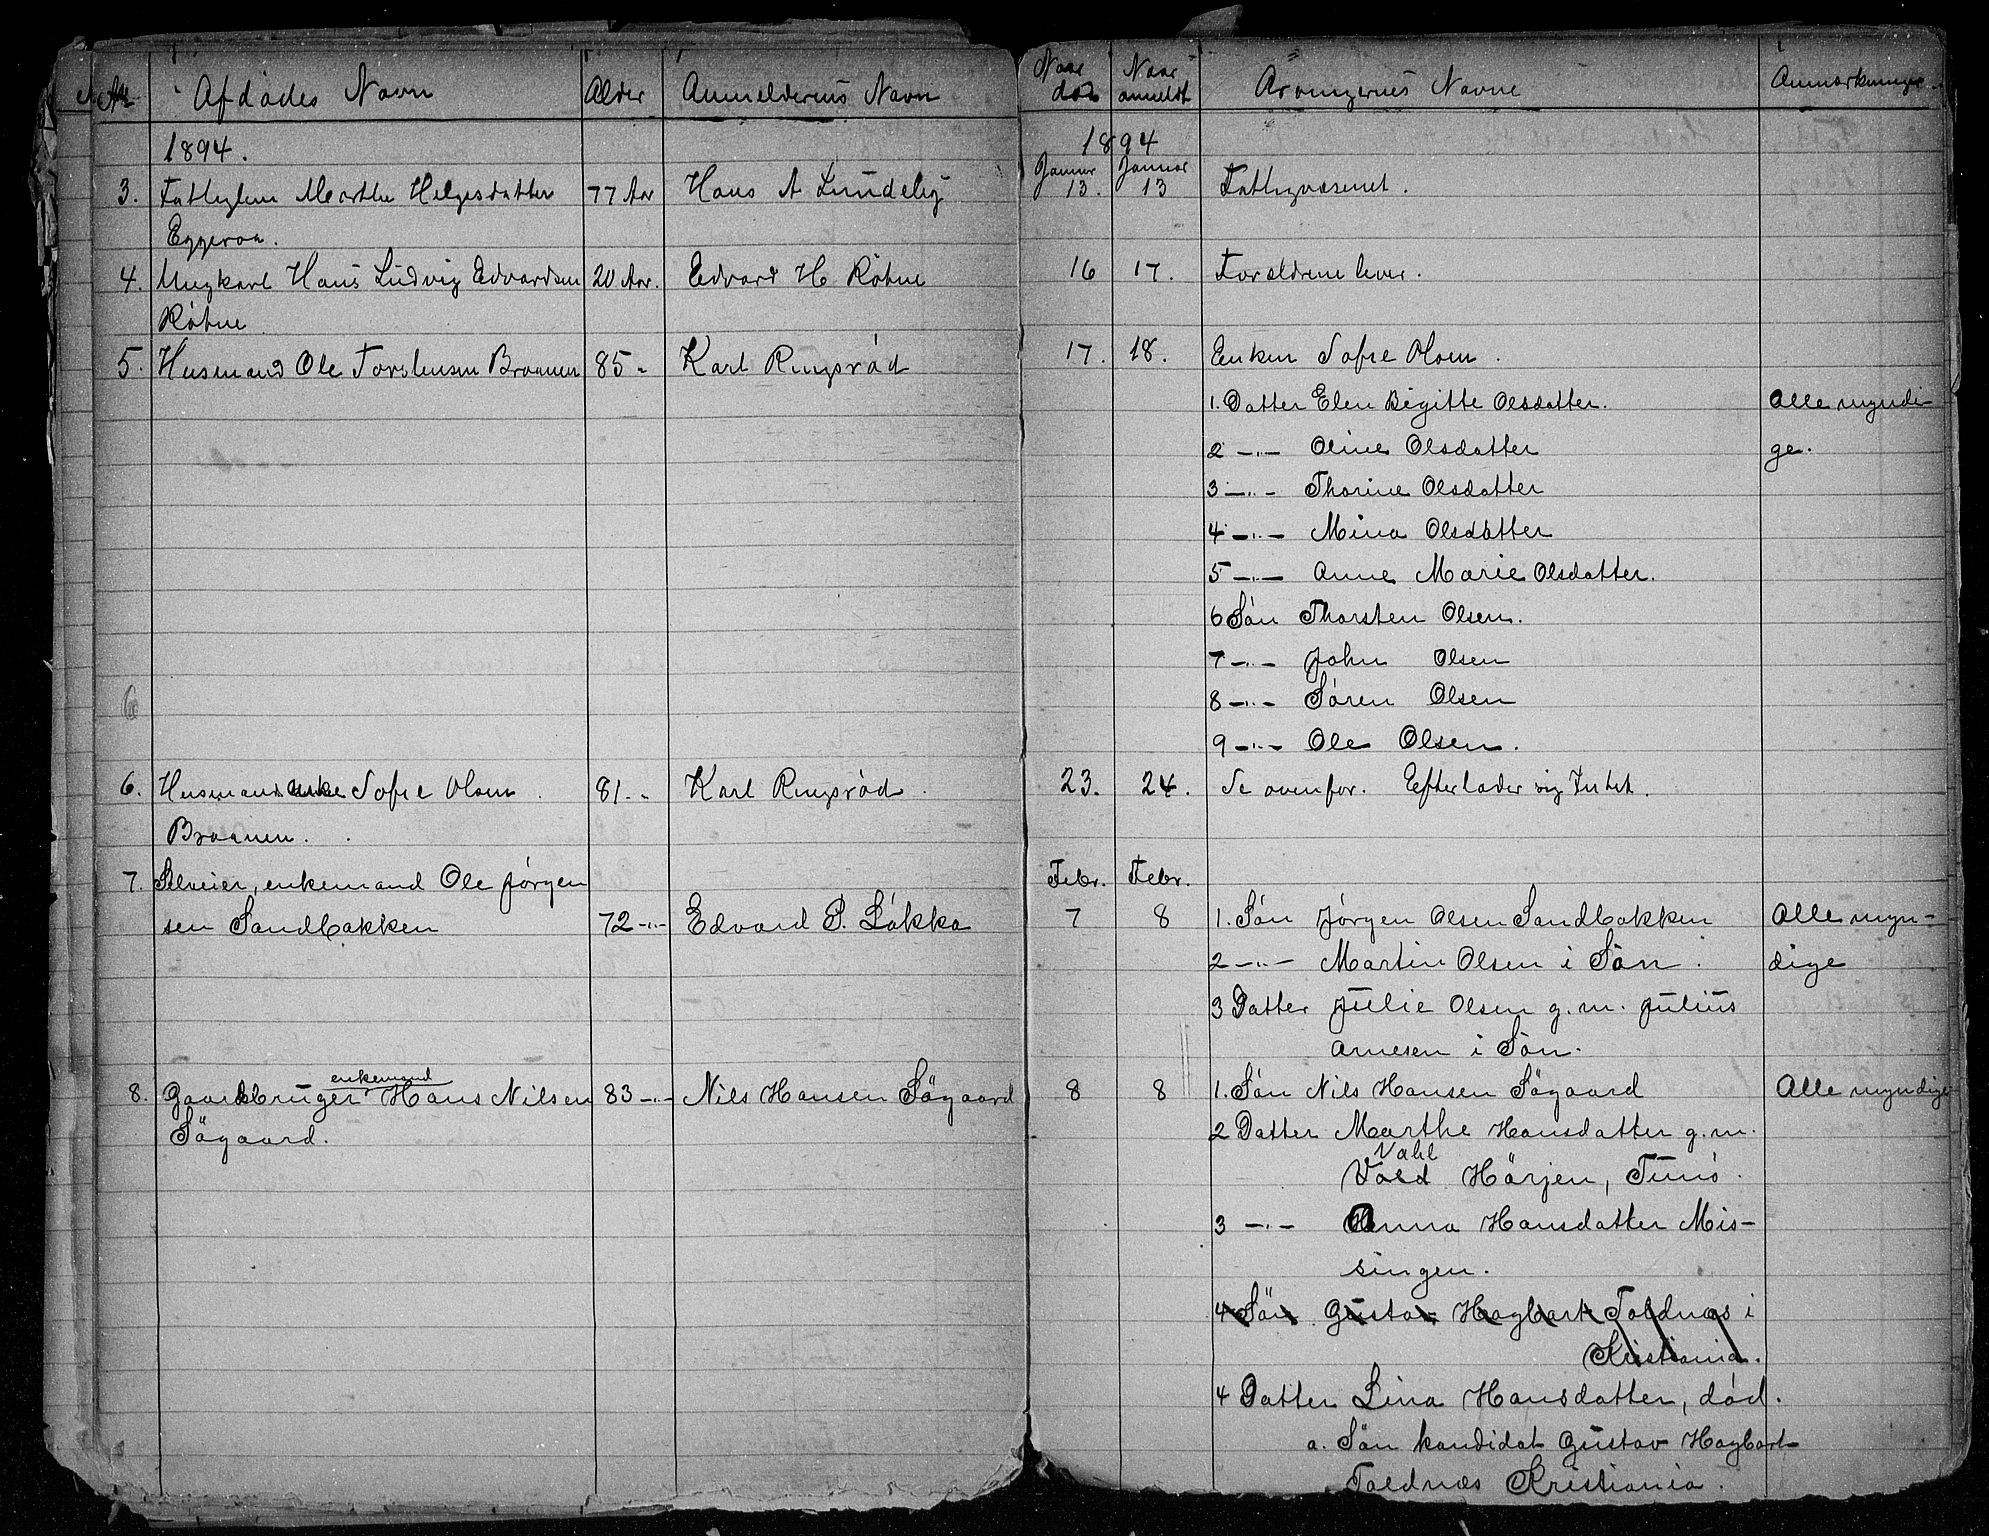 No. Afdødes Navn Alder Anmelderens Navn
1894.
3. Fatteglem Marthe Helgesdatter 77 Aar Hans A Lundeby
Eggeroa.
4. Ungkarl Hans Ludvig Edvardsen 20 Aar. Edvard H Röhne
Röhne
5. Husmand Ole Torstensen Braanen 85 - Karl Ringsrød
6
6. Husmandsenke Sofie Olsen 81. - Karl Ringsrød
Braanen.
7. Selveier, enkemand Ole Jörgen
sen Sandbakken 72 -"- Edvard P. Løkka
enkemand
8. Gaardbruger Hans Nilsen 83 -"- Nils Hansen Sögaard
Sögaard.
Naar død Naar anmeldt Arvingernes Navne Anmærkninger.
1894
Januar Januar
13. 13 Fattigvæsenet.
16 17. Forældrene lever.
17. 18. Enken Sofie Olsen.
1. Datter Elen Bigitte Olsdatter. Alle myndi-
2 -"- Oline Olsdatter ge.
3 -"- Thorine Olsdatter
4 -"- Mina Olsdatter
5 -"- Anne Marie Olsdatter.
6 Sön Thorsten Olsen.
7 -"- John Olsen
8 -"- Søren Olsen
9 -"- Ole Olsen.
23. 24. Se ovenfor. Efterlader sig Intet.
Febr. Febr.
7 8 1. Sön Jörgen Olsen Sandbakken Alle myn-
2 -"- Martin Olsen i Sön. dige
3 Datter Julie Olsen g. m. Julius
Arnesen i Sön.
8 8 1. Sön Nils Hansen Sögaard Alle myndige
2 Datter Marthe Hansdatter g. m.
Vahl
Vold Hörjen, Tunö.
3 -"- Anna Hansdatter Mis-
singen.
4 Sön Gustav Hagbart Toldnæs i
Kristiania.
4 Datter Lina Hansdatter, död.
a. Sön kandidat Gustav Hagbart
Toldnæs Kristiania.